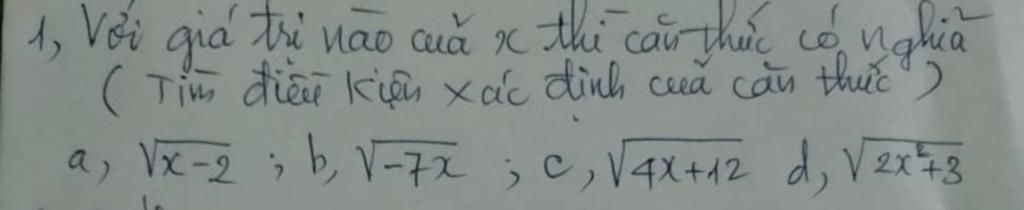 1, Với giá trị nào của x thì căn thức có nghĩa
( Tìm điều kiện xác định của căn thức )
a, √x-2 ; b, √-7x ; c, √4x+12 d, √2x²+3